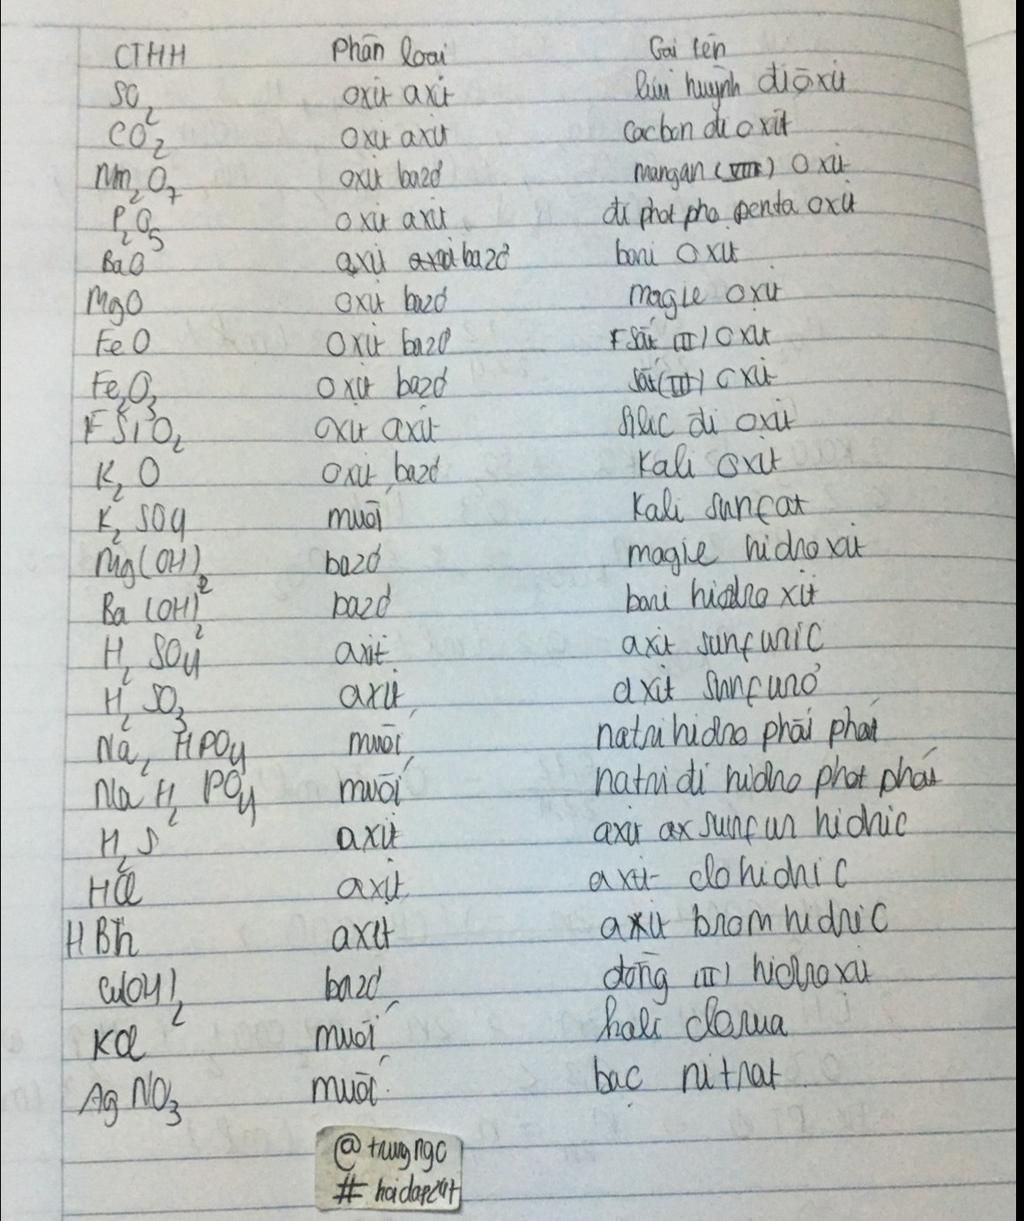 CTHH Phân loại Gọi tên
SO2 oxit axit lưu huỳnh đi oxit
CO2 oxit axit cacbon đi oxit
Mn2O7 oxit bazơ mangan (VII) oxit
P2O5 oxit axit đi phot pho penta oxit
BaO axit bazơ bari oxit
MgO oxit bazơ magie oxit
FeO oxit bazơ sắt (II) oxit
Fe2O3 oxit bazơ sắt (III) oxit
SiO2 oxit axit silic đi oxit
K2O oxit bazơ Kali oxit
K2SO4 muối Kali sunfat
Mg(OH)2 bazơ magie hidroxit
Ba(OH)2 bazơ bari hidroxit
H2SO4 axit axit sunfuric
H2SO3 axit axit sunfurơ
Na2HPO4 muối natri hidro phốt phát
NaH2PO4 muối natri đi hidro phot phát
H2S axit axit sunfur hidric
HCl axit axit clohidric
HBr axit axit brom hidric
Cu(OH)2 bazơ đồng (II) hidroxit
KCl muối kali clorua
AgNO3 muối bạc nitrat
@trungngc
# hoidap247